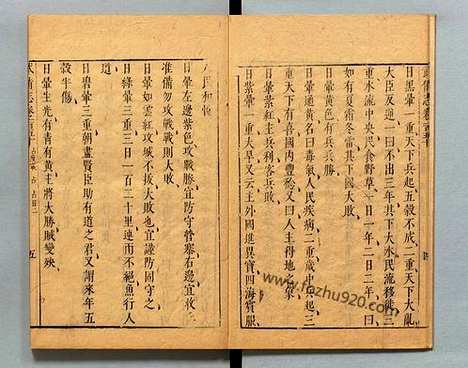 日黑暈一重天下兵起五穀不成二重天下大亂
大臣反三重一曰不出三年其下大水民流移徙三
重水流中央民食野草一曰一年二曰二年
如有夏霜冬雷其下國大敗
日暈黃色有兵兵勝
日暈通黃名曰毒氣人民疾病二重歲中兵起三
重天下有喜國內豐稔又曰人主得地
日暈紫色主兵利客兵敗
一重大旱又云主外國進異寶四海賓服
人民和悅
日暈左邊紫色攻戰勝宜防守營寨右邊宜
准備勿攻戰戰則大敗
日暈如雲紅攻城不拔大敗也宜謹防固守之
日綠暈三重三日一百二十里連而不絕魚行人
道
日碧暈三重朝畫賢臣助有道之君又謝來年五
穀半傷
日暈生光有青有黃主將大勝賊變殃
五
www.fozhu920.com